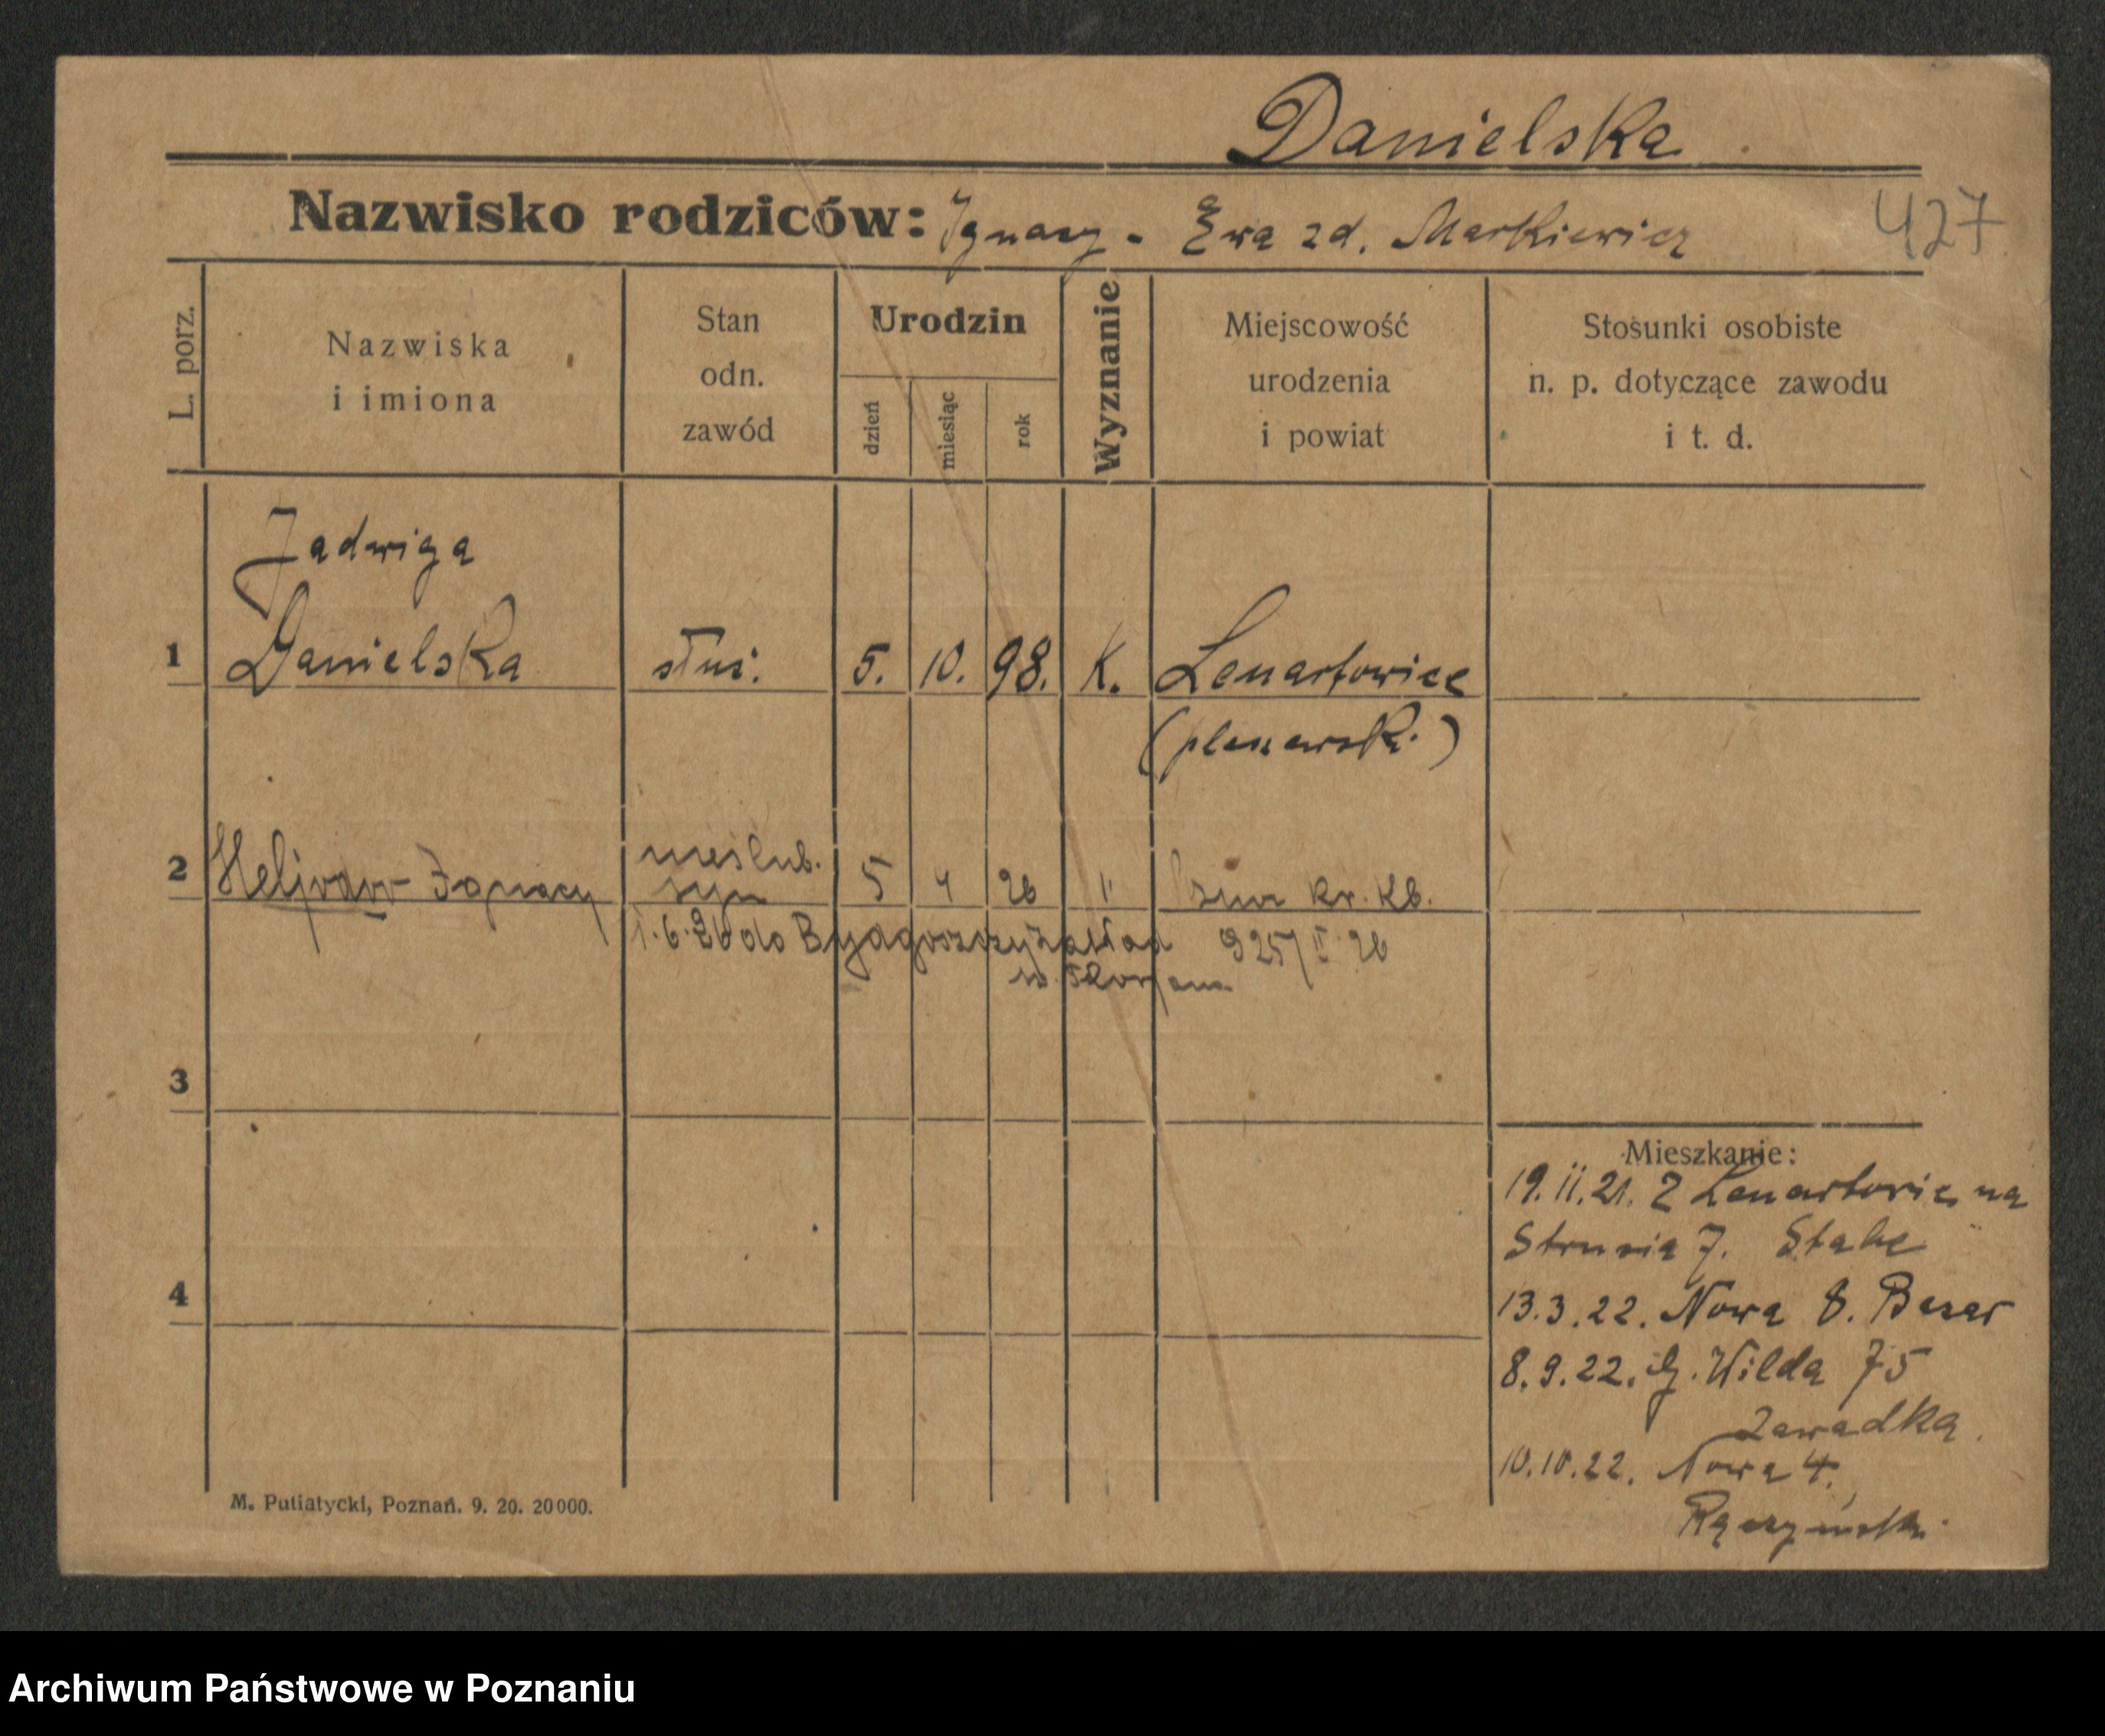 Danielska
Nazwisko rodziców: Ignacy - Ewa zd. Markiewicz
427
L. porz.
Nazwiska
i imiona
Stan
odn.
zawód
Urodzin
dzień
miesiąc
rok
Wyznanie
Miejscowość
urodzenia
i powiat
Stosunki osobiste
n. p. dotyczące zawodu
i t. d.
Jadwiga
1 Danielska służ. 5. 10. 98. K. Lenartowice
(pleszewski.)
nieślub.
2 Ignacy syn 5 4 26 " kr. Kb.
1.6.26 do Bydgoszczy zakład 925/II 26
św. Florjana
3
4
Mieszkanie:
19.11.21. Z Lenartowic na
Strusia 7. Stahe
13.3.22. Nowa 8. Bazar
8.9.22. G. Wilda 75
Zawadka.
10.10.22. Nowa 4.
M. Putiatycki, Poznań. 9. 20. 20000.
Archiwum Państwowe w Poznaniu